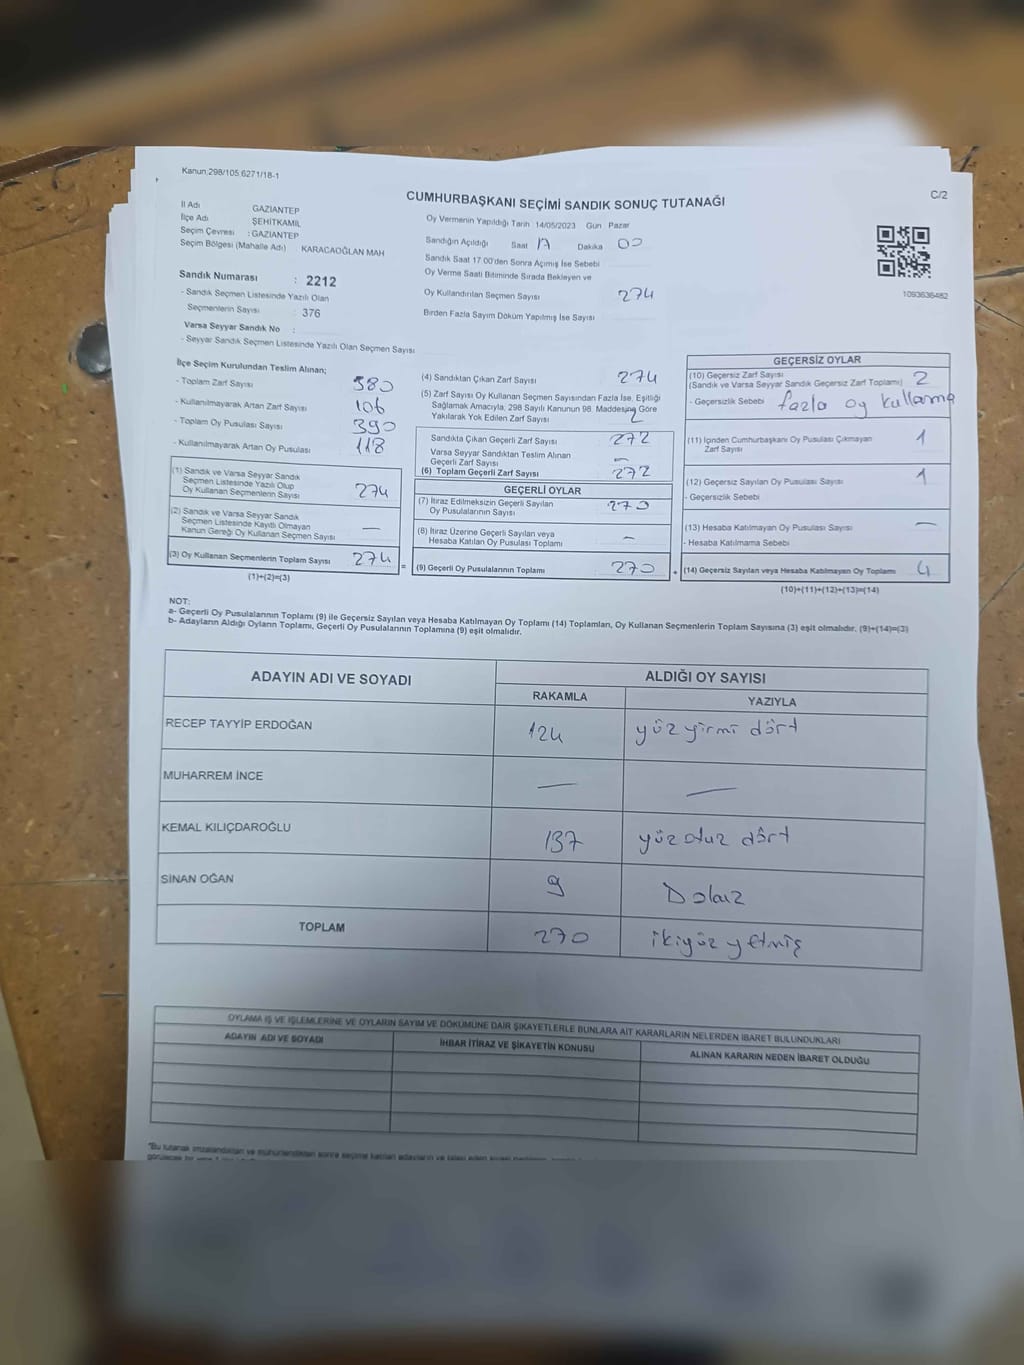 Kanun:298/105,6271/18-1
CUMHURBAŞKANI SEÇİMİ SANDIK SONUÇ TUTANAĞI
C/2
İl Adı GAZİANTEP
İlçe Adı ŞEHİTKAMİL
Seçim Çevresi : GAZİANTEP
Seçim Bölgesi (Mahalle Adı) KARACAOĞLAN MAH
Sandık Numarası : 2212
- Sandık Seçmen Listesinde Yazılı Olan
Seçmenlerin Sayısı : 376
Varsa Seyyar Sandık No :
- Seyyar Sandık Seçmen Listesinde Yazılı Olan Seçmen Sayısı
Oy Vermenin Yapıldığı Tarih 14/05/2023 Gün Pazar
Sandığın Açıldığı Saat 17 Dakika 00
Sandık Saat 17:00'den Sonra Açımış İse Sebebi
Oy Verme Saati Bitiminde Sırada Bekleyen ve
Oy Kullandırılan Seçmen Sayısı 274
Birden Fazla Sayım Döküm Yapılmış İse Sayısı
1093636482
İlçe Seçim Kurulundan Teslim Alınan;
- Toplam Zarf Sayısı 380
- Kullanılmayarak Artan Zarf Sayısı 106
- Toplam Oy Pusulası Sayısı 390
- Kullanılmayarak Artan Oy Pusulası 118
(1) Sandık ve Varsa Seyyar Sandık
Seçmen Listesinde Yazılı Olup
Oy Kullanan Seçmenlerin Sayısı 274
(2) Sandık ve Varsa Seyyar Sandık
Seçmen Listesinde Kayıtlı Olmayan
Kanun Gereği Oy Kullanan Seçmen Sayısı —
(3) Oy Kullanan Seçmenlerin Toplam Sayısı 274
(1)+(2)=(3)
(4) Sandıktan Çıkan Zarf Sayısı 274
(5) Zarf Sayısı Oy Kullanan Seçmen Sayısından Fazla İse, Eşitliği
Sağlamak Amacıyla, 298 Sayılı Kanunun 98. Maddesine Göre
Yakılarak Yok Edilen Zarf Sayısı 2
Sandıkta Çıkan Geçerli Zarf Sayısı 272
Varsa Seyyar Sandıktan Teslim Alınan
Geçerli Zarf Sayısı —
(6) Toplam Geçerli Zarf Sayısı 272
GEÇERLİ OYLAR
(7) İtiraz Edilmeksizin Geçerli Sayılan
Oy Pusulalarının Sayısı 270
(8) İtiraz Üzerine Geçerli Sayılan veya
Hesaba Katılan Oy Pusulası Toplamı —
= (9) Geçerli Oy Pusulalarının Toplamı 270
GEÇERSİZ OYLAR
(10) Geçersiz Zarf Sayısı 2
(Sandık ve Varsa Seyyar Sandık Geçersiz Zarf Toplamı)
- Geçersizlik Sebebi fazla oy kullanma
(11) İçinden Cumhurbaşkanı Oy Pusulası Çıkmayan
Zarf Sayısı 1
(12) Geçersiz Sayılan Oy Pusulası Sayısı 1
- Geçersizlik Sebebi
(13) Hesaba Katılmayan Oy Pusulası Sayısı —
- Hesaba Katılmama Sebebi
+ (14) Geçersiz Sayılan veya Hesaba Katılmayan Oy Toplamı 4
(10)+(11)+(12)+(13)=(14)
NOT:
a- Geçerli Oy Pusulalarının Toplamı (9) ile Geçersiz Sayılan veya Hesaba Katılmayan Oy Toplamı (14) Toplamları, Oy Kullanan Seçmenlerin Toplam Sayısına (3) eşit olmalıdır. (9)+(14)=(3)
b- Adayların Aldığı Oyların Toplamı, Geçerli Oy Pusulalarının Toplamına (9) eşit olmalıdır.
ADAYIN ADI VE SOYADI
ALDIĞI OY SAYISI
RAKAMLA YAZIYLA
RECEP TAYYİP ERDOĞAN 124 yüz yirmi dört
MUHARREM İNCE — —
KEMAL KILIÇDAROĞLU 137 yüz otuz dört
SİNAN OĞAN 9 Dokuz
TOPLAM 270 ikiyüz yetmiş
OYLAMA İŞ VE İŞLEMLERİNE VE OYLARIN SAYIM VE DÖKÜMÜNE DAİR ŞİKAYETLERLE BUNLARA AİT KARARLARIN NELERDEN İBARET BULUNDUKLARI
ADAYIN ADI VE SOYADI İHBAR İTİRAZ VE ŞİKAYETİN KONUSU ALINAN KARARIN NEDEN İBARET OLDUĞU